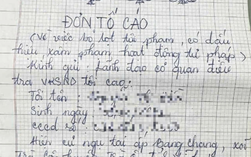 ĐƠN TỐ CÁO
(Về việc bỏ lọt tội phạm, có dấu
hiệu xâm phạm hoạt động tư pháp)
Kính gửi: Lãnh đạo cơ quan điều
tra VKSND tối cao.
Tôi tên
Sinh ngày
CCCD số
Hiện cư ngụ tại ấp Bang Chang, xã